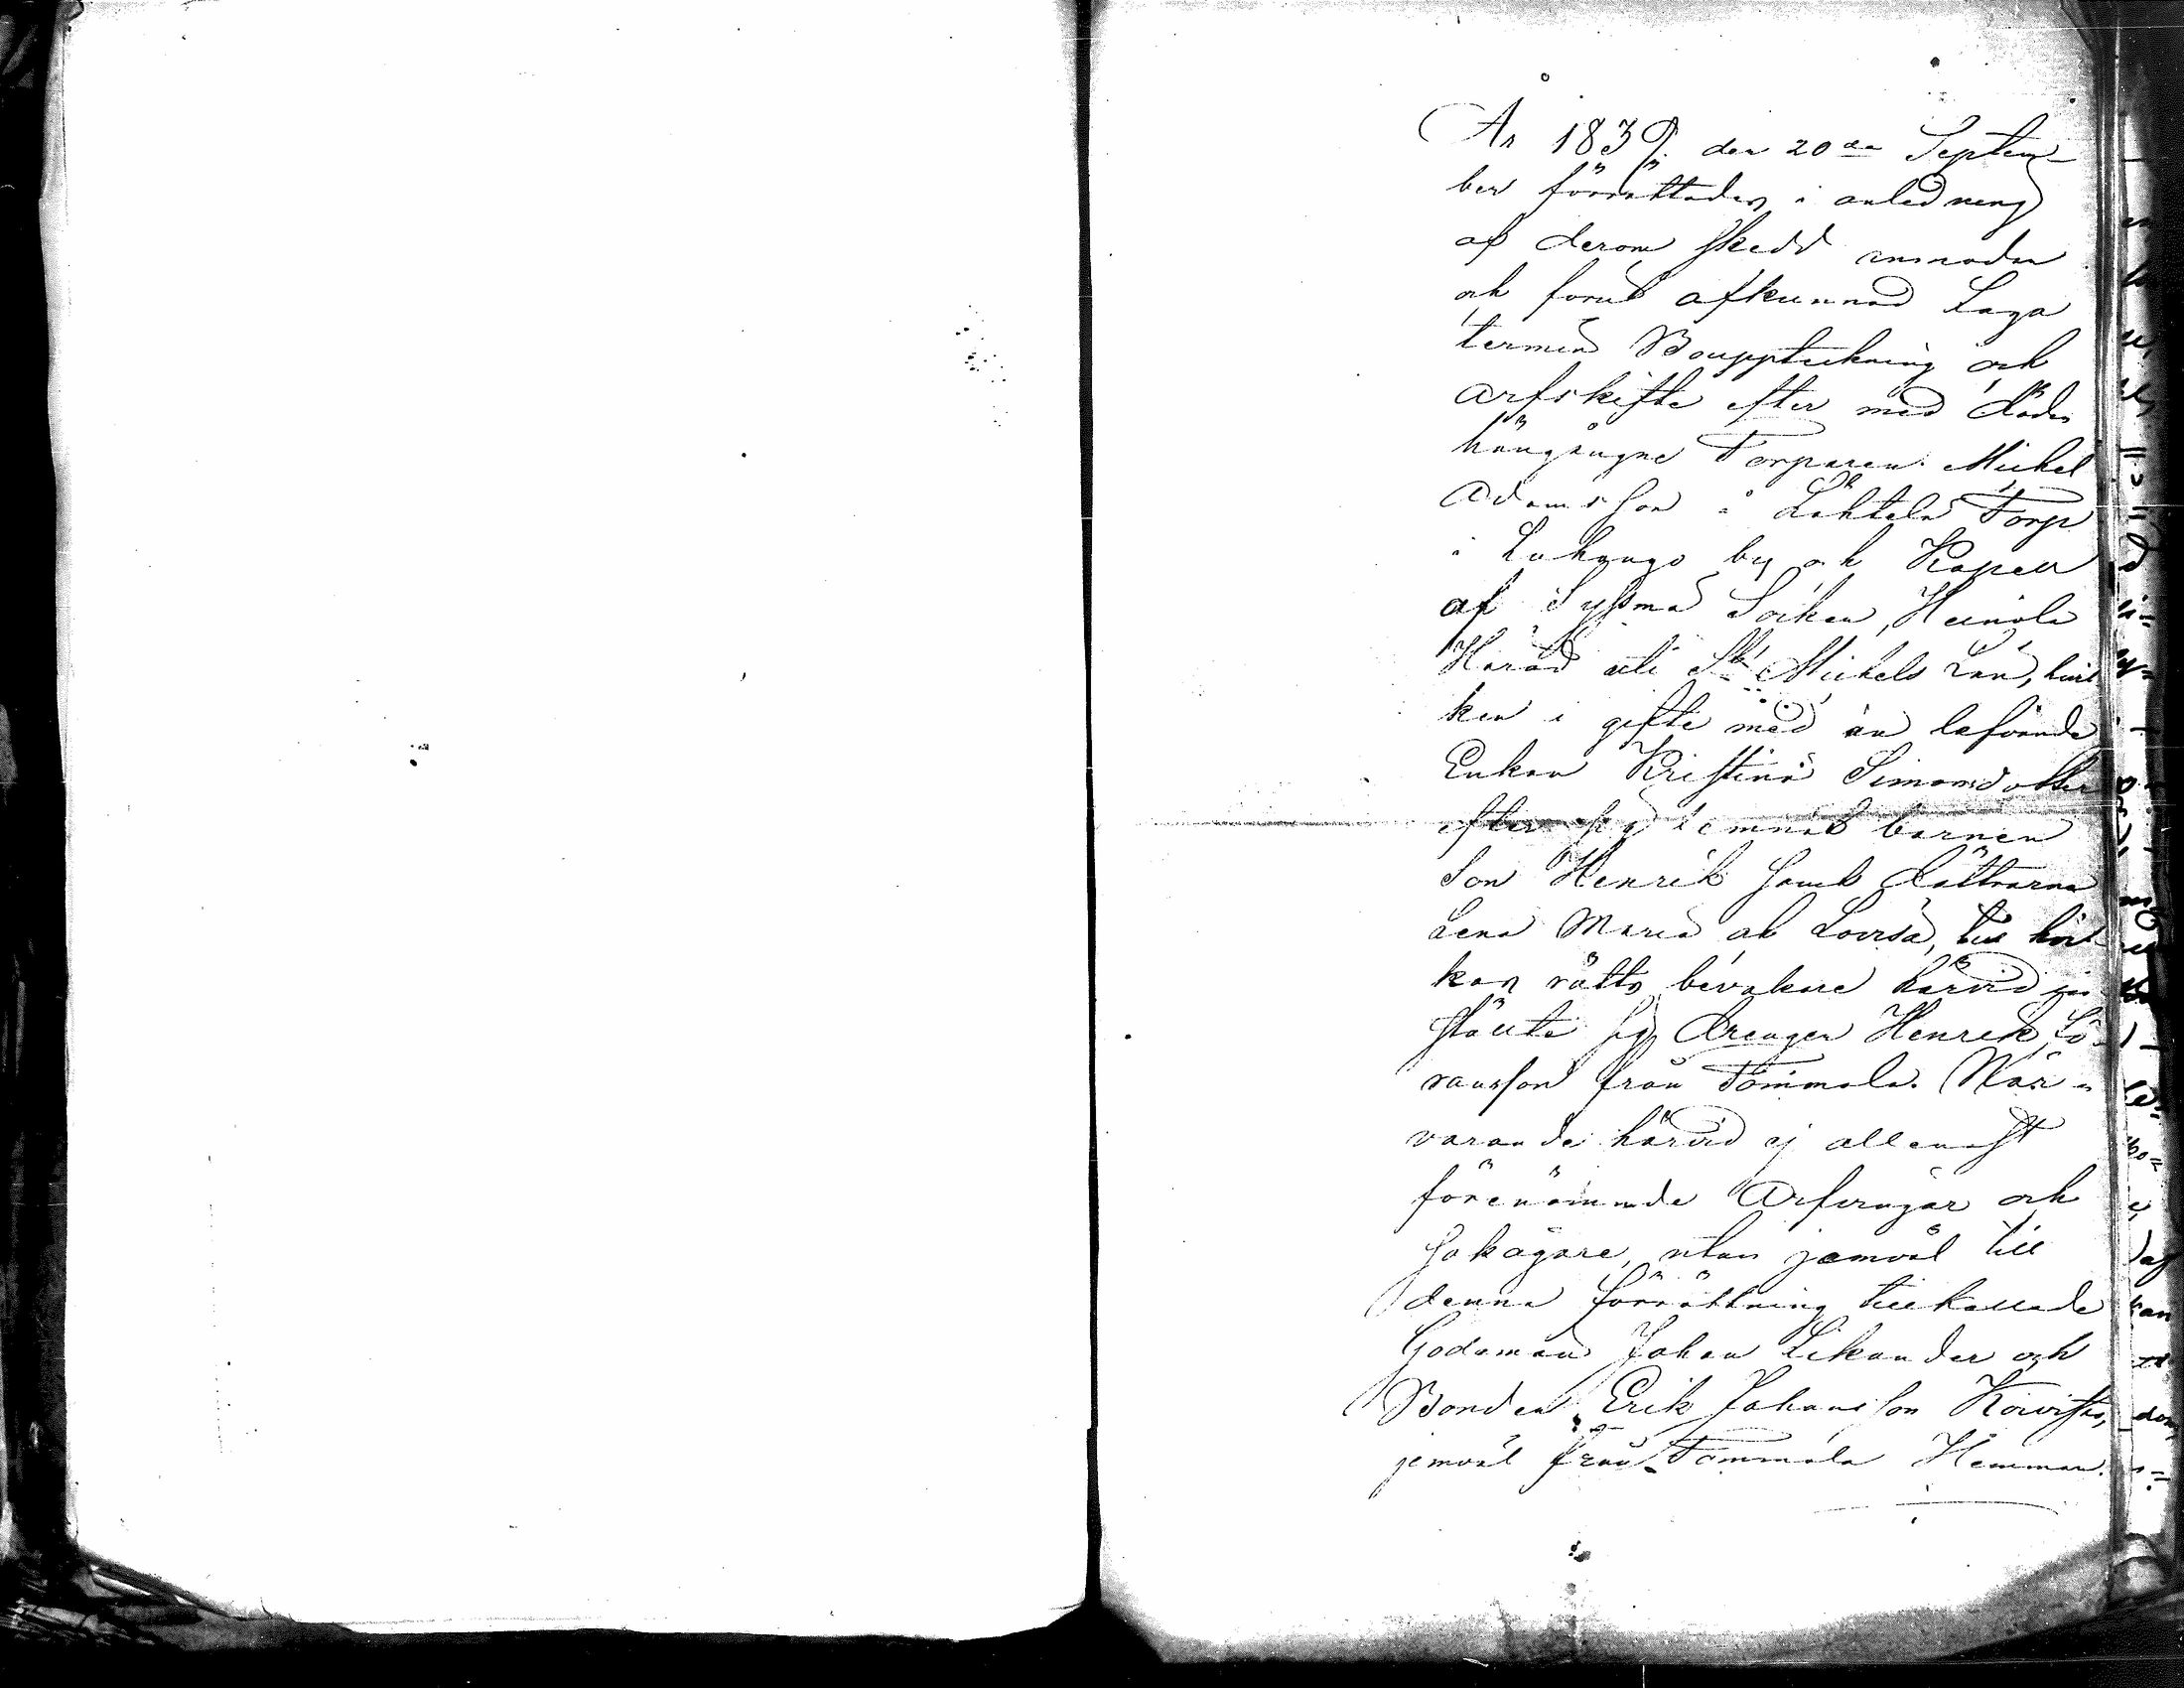 År 1839 den 20de Septem-
ber förrättades i anledning
af derom skedd anmodan
och förut afkunnad Laga
termin Bouppteckning och
arfskifte efter med döden
hängångne Torparen Mickel
Adamsson å Lahtela Torp
i Luhango by och Kapell
af Sysmä Socken, Heinola
Härad uti St Michels Län, hvil
ken i gifte med än lefvande
Enkan Kristina Simonsdotter
efter sig lemnat barnen
Son Henrik samt döttrarna
Lena Maria och Lovisa, till hvil-
kas rätts bevakare härvid in
ställte sig Drengen Henrik Gö-
ransson från Tommola. När-
varande härvid ej allenast
förenämnde Arfvingar och
sakägare, utan jemväl till
denna förrättning tillkallade
Godemän Johan Likander och
Bonden Erik Johansson Koivisto,
jemväl från Tommola Hemman.